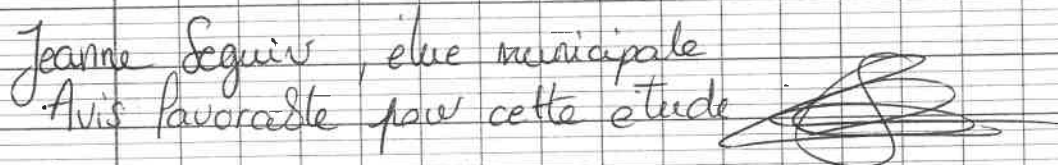 Jeanne Seguin, élue municipale
Avis favorable pour cette étude